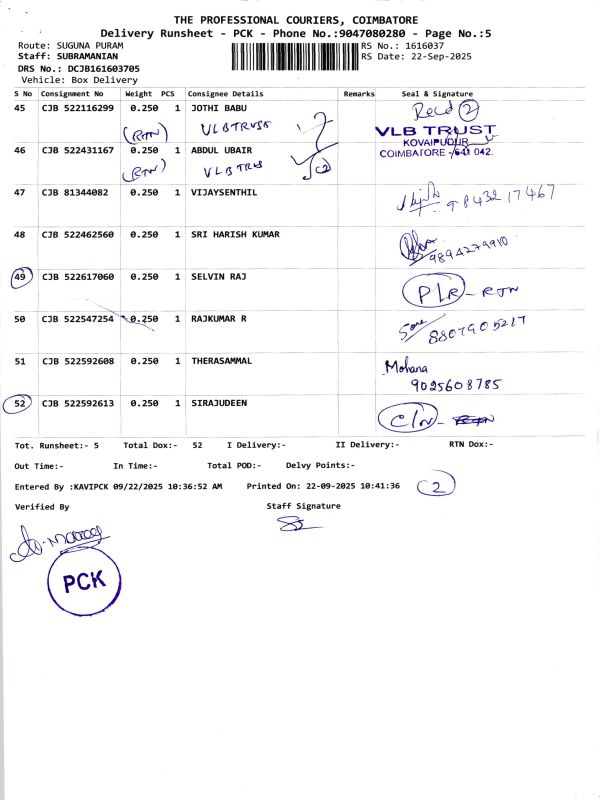 THE PROFESSIONAL COURIERS, COIMBATORE
Delivery Runsheet - PCK - Phone No.:9047080280 - Page No.:5
Route: SUGUNA PURAM RS No.: 1616037
Staff: SUBRAMANIAN RS Date: 22-Sep-2025
DRS No.: DCJB161603705
Vehicle: Box Delivery
S No Consignment No Weight PCS Consignee Details Remarks Seal & Signature
45 CJB 522116299 0.250 1 JOTHI BABU Recd 2
(RTN) VLBTRUST VLB TRUST
KOVAIPUDUR
46 CJB 522431167 0.250 1 ABDUL UBAIR COIMBATORE - 641 042.
(RTN) VLB TRUS
47 CJB 81344082 0.250 1 VIJAYSENTHIL 98432 17467
48 CJB 522462560 0.250 1 SRI HARISH KUMAR
9894279910
49 CJB 522617060 0.250 1 SELVIN RAJ PLR - RTN
50 CJB 522547254 0.250 1 RAJKUMAR R
8807905217
51 CJB 522592608 0.250 1 THERASAMMAL Mohana
9025608785
52 CJB 522592613 0.250 1 SIRAJUDEEN C/N - RTN
Tot. Runsheet:- 5 Total Dox:- 52 I Delivery:- II Delivery:- RTN Dox:-
Out Time:- In Time:- Total POD:- Delvy Points:-
Entered By :KAVIPCK 09/22/2025 10:36:52 AM Printed On: 22-09-2025 10:41:36 2
Verified By Staff Signature
PCK